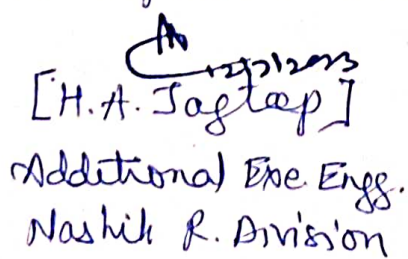 [H.A. Jagtap]
Additional Exe. Engg.
Nashik R. Division